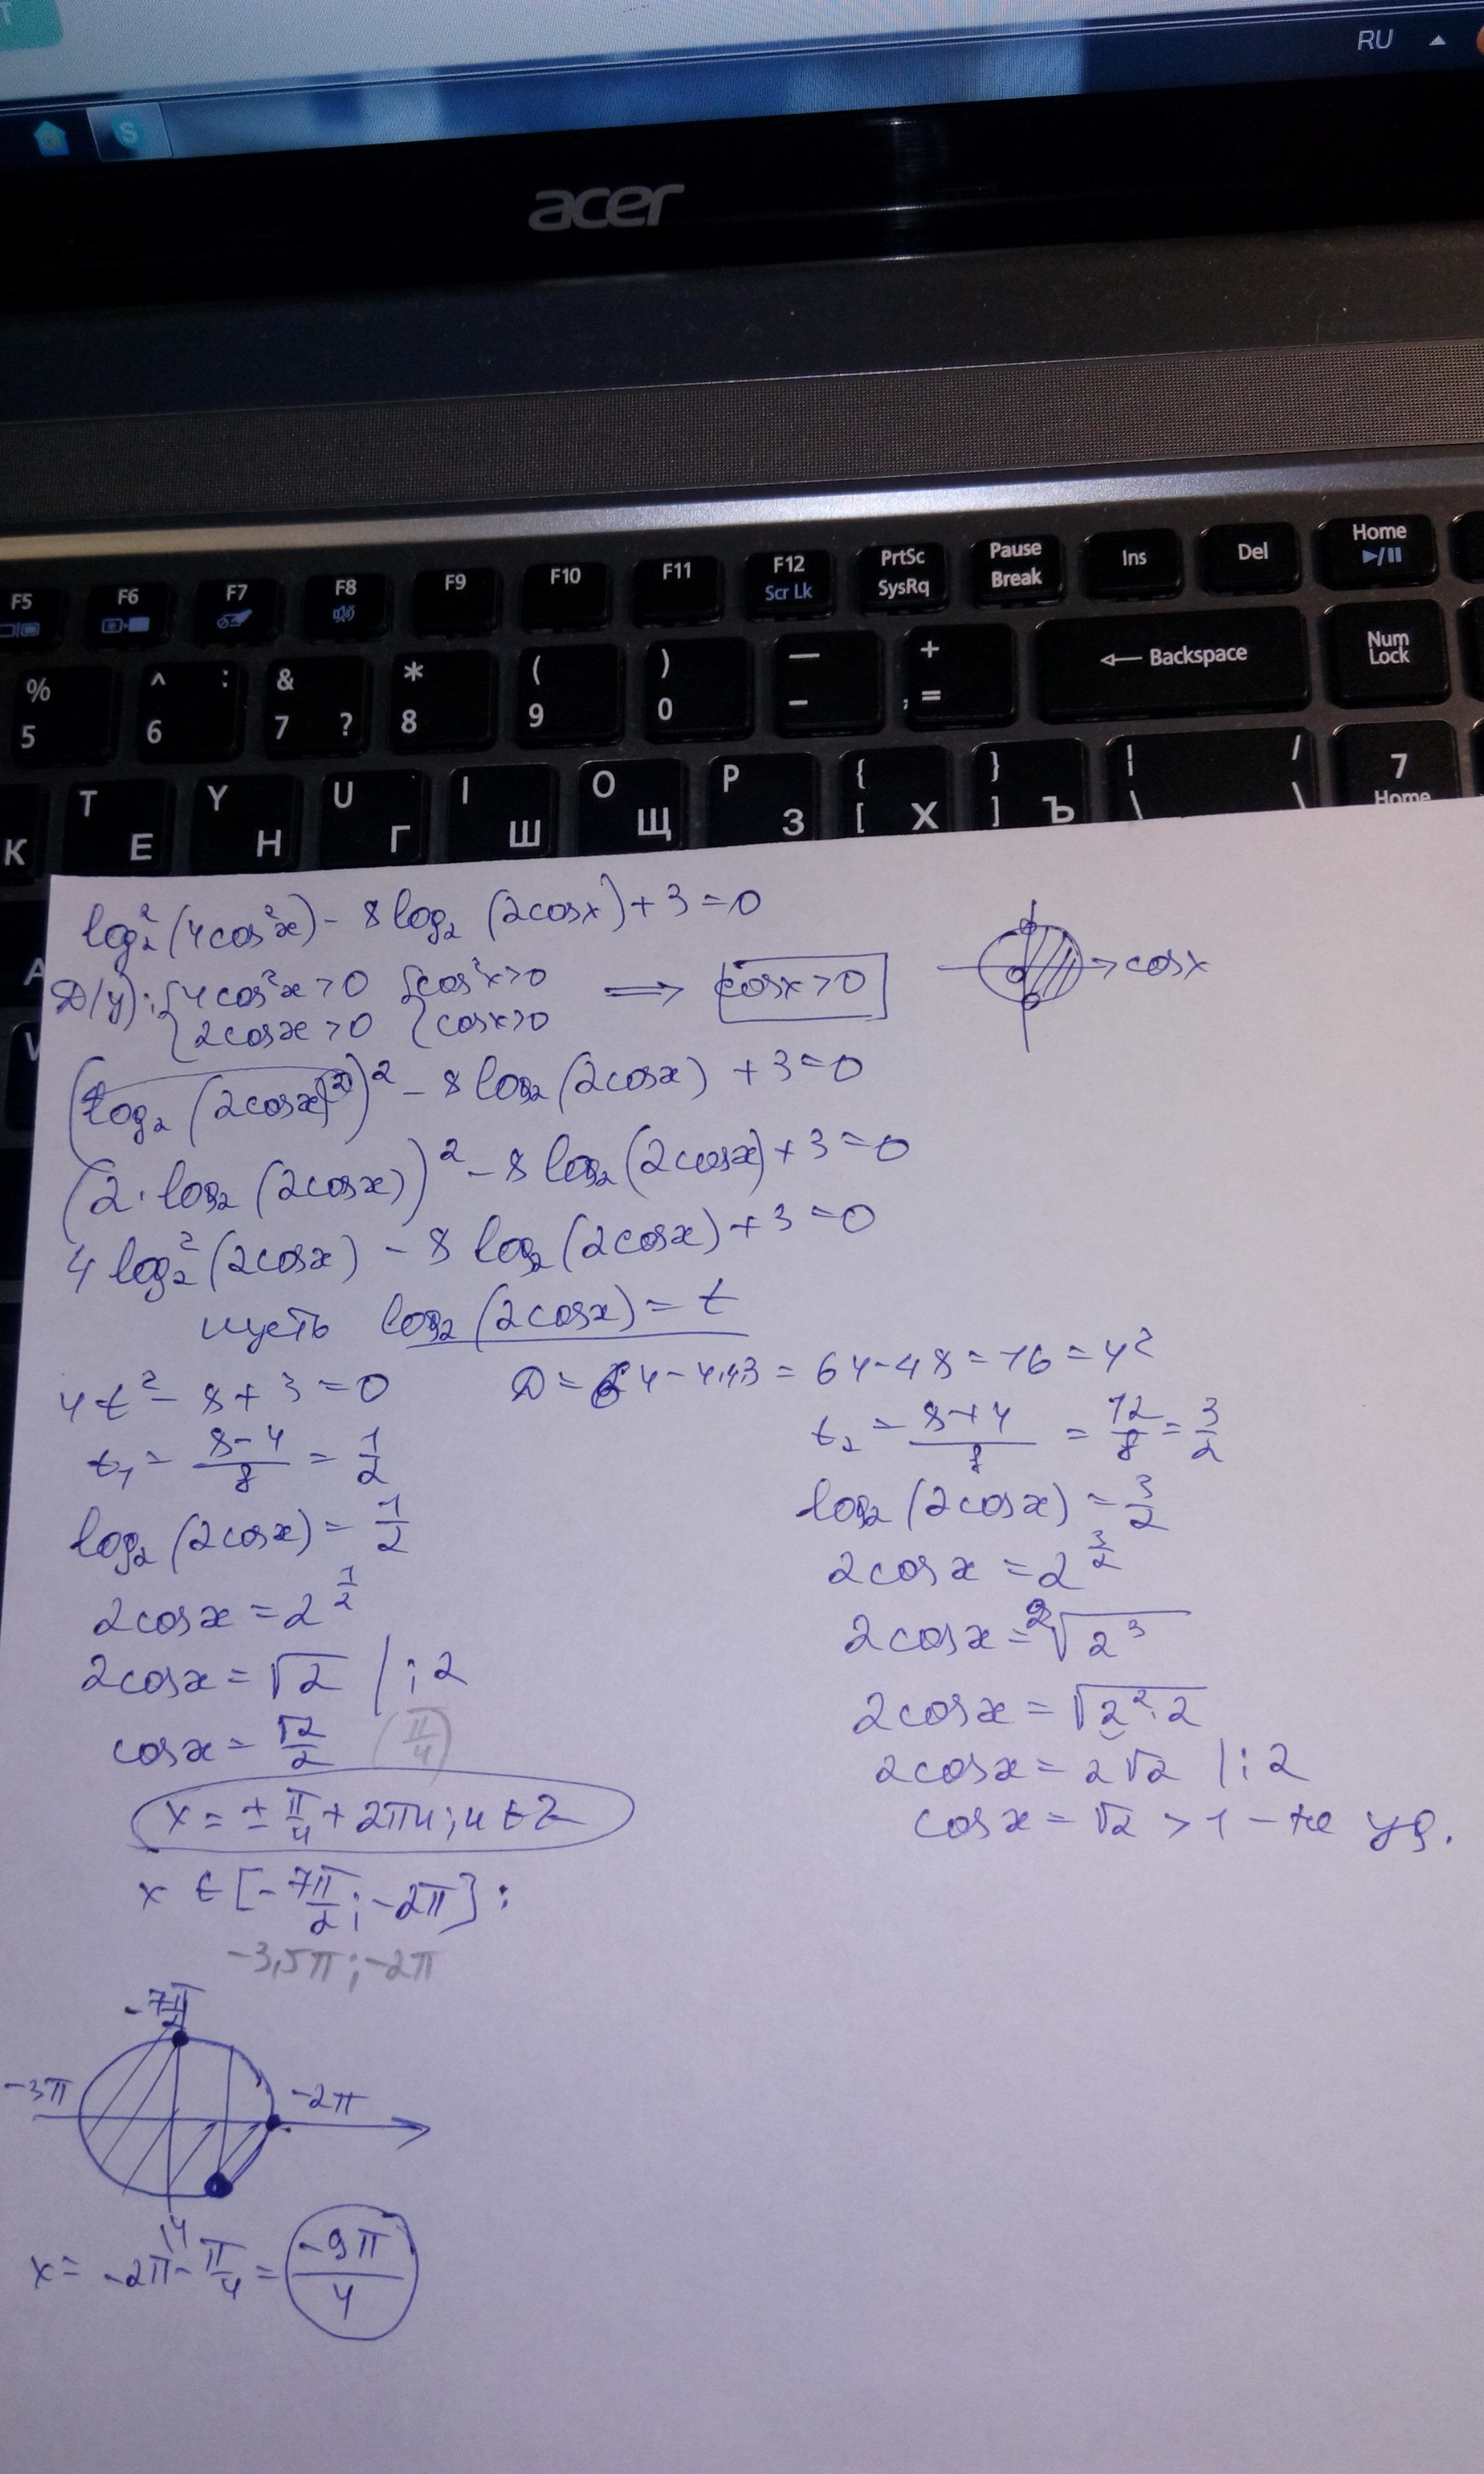 RU
S
acer
F5 F6 F7 F8 F9 F10 F11 F12 Scr Lk PrtSc SysRq Pause Break Ins Del Home
% 5 ^ : 6 & 7 ? * 8 ( 9 ) 0 — - + , = Backspace Num Lock
К T Е Y Н U Г I Ш O Щ P З { [ Х } ] Ъ | \ / \ 7 Home
log₂²(4cos²x) - 8log₂(2cosx) + 3 = 0
Д(у): {4cos²x > 0 {cos²x > 0 ⟹ cosx > 0 cosx
{2cosx > 0 {cosx > 0
(log₂(2cosx)²)² - 8log₂(2cosx) + 3 = 0
(2·log₂(2cosx))² - 8log₂(2cosx) + 3 = 0
4log₂²(2cosx) - 8log₂(2cosx) + 3 = 0
пусть log₂(2cosx) = t
4t² - 8 + 3 = 0 D = 64 - 4·4·3 = 64 - 48 = 16 = 4²
t₁ = (8-4)/8 = 1/2 t₂ = (8+4)/8 = 12/8 = 3/2
log₂(2cosx) = 1/2 log₂(2cosx) = 3/2
2cosx = 2^(1/2) 2cosx = 2^(3/2)
2cosx = √2 | :2 2cosx = ²√2³
cosx = √2/2 (π/4) 2cosx = √2²·2
x = ±π/4 + 2πn; n ∈ Z 2cosx = 2√2 | :2
cosx = √2 > 1 - не уд.
x ∈ [-7π/2; -2π]:
-3,5π; -2π
-7π/2
-3π -2π
x = -2π - π/4 = -9π/4